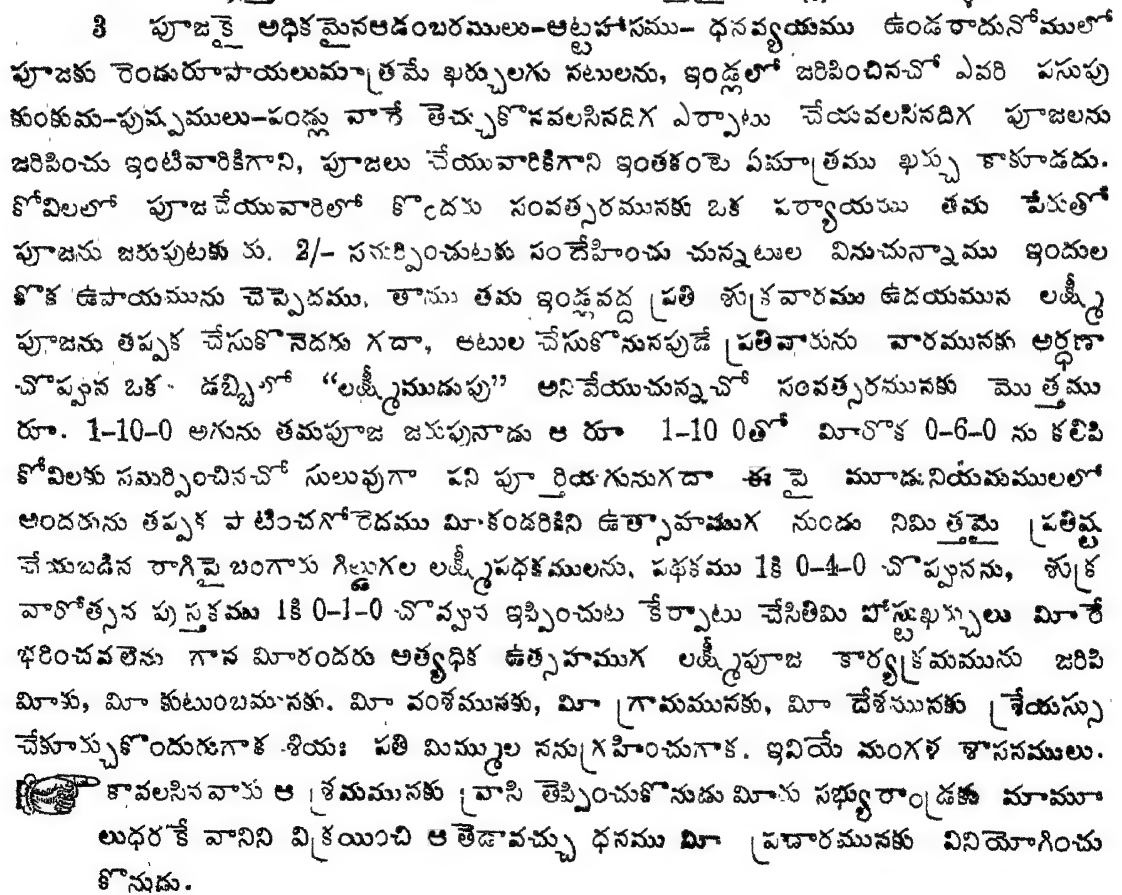 3 పూజకై అధికమైనఆడంబరములు-ఆట్టహాసము- ధనవ్యయము ఉండరాదునోములో
పూజకు రెండురూపాయలుమాత్రమే ఖర్చులగు నటులను, ఇండ్లలో జరిపించినచో ఎవరి పసుపు
కుంకుమ-పుష్పములు-పండ్లు వారే తెచ్చుకొనవలసినదిగ ఎర్పాటు చేయవలసినదిగ పూజలను
జరిపించు ఇంటివారికిగాని, పూజలు చేయువారికిగాని ఇంతకంటె ఏమాత్రము ఖర్చు కాకూడదు.
కోవిలలో పూజచేయువారిలో కొందరు సంవత్సరమునకు ఒక పర్యాయము తమ పేరుతో
పూజను జరుపుటకు రు. 2/- సమర్పించుటకు సందేహించు చున్నటుల వినుచున్నాము ఇందుల
కొక ఉపాయమును చెప్పెదము. తాము తమ ఇండ్లవద్ద ప్రతి శుక్రవారము ఉదయమున లక్ష్మీ
పూజను తప్పక చేసుకొనెదరు గదా, అటుల చేసుకొనునపుడే ప్రతివారును వారమునకు అర్ధణా
చొప్పున ఒక డబ్బిలో “లక్ష్మీముడుపు” అనివేయుచున్నచో సంవత్సరమునకు మొత్తము
రూ. 1-10-0 అగును తమపూజ జరుపునాడు ఆ రూ 1-10 0తో మీరొక 0-6-0 ను కలిపి
కోవిలకు సమర్పించినచో సులువుగా పని పూర్తియగునుగదా ఈ పై మూడునియమములలో
అందరును తప్పక పాటించగోరెదము మీకందరికిని ఉత్సాహముగ నుండు నిమిత్తమై ప్రతిష్ఠ
చేయబడిన రాగిపై బంగారు గిల్టుగల లక్ష్మీపధకములను, పథకము 1కి 0-4-0 చొప్పునను, శుక్ర
వారోత్సన పుస్తకము 1కి 0-1-0 చొవ్వున ఇప్పించుట కేర్పాటు చేసితిమి పోస్టుఖర్చులు మీరే
భరించవలెను గాన మీరందరు అత్యధిక ఉత్సహముగ లక్ష్మీపూజ కార్యక్రమమును జరిపి
మీకు, మీ కుటుంబమునకు. మీ వంశమునకు, మీ గ్రామమునకు, మీ దేశమునకు శ్రేయస్సు
చేకూర్చుకొందురుగాక శ్రియః పతి మిమ్ముల ననుగ్రహించుగాక. ఇవియే మంగళ శాసనములు.
కావలసినవారు ఆ శ్రమమునకు వ్రాసి తెప్పించుకొనుడు మీరు సభ్యురాండ్రకు మామూ
లుధర కే వానిని విక్రయించి ఆ తేడావచ్చు ధనము మీ ప్రచారమునకు వినియోగించు
కొనుడు.